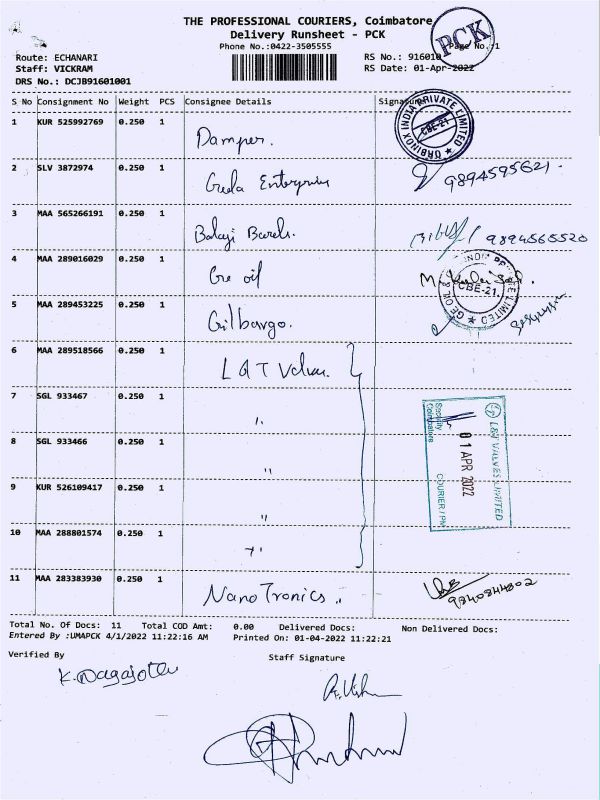 THE PROFESSIONAL COURIERS, Coimbatore
Delivery Runsheet - PCK
Phone No.:0422-3505555
PCK
Page No.:1
Route: ECHANARI
Staff: VICKRAM
DRS No.: DCJB91601001
RS No.: 916010
RS Date: 01-Apr-2022
S No Consignment No Weight PCS Consignee Details Signature
1 KUR 525992769 0.250 1 Damper.
ORBINOX INDIA PRIVATE LIMITED CBE-21
2 SLV 3872974 0.250 1 Enterprises 9894595621
3 MAA 565266191 0.250 1 Balaji 9894565520
4 MAA 289016029 0.250 1 Gee oil
CBE-21.
5 MAA 289453225 0.250 1 Gilbargo.
6 MAA 289518566 0.250 1 L & T Valves.
7 SGL 933467 0.250 1 "
8 SGL 933466 0.250 1 "
9 KUR 526109417 0.250 1 "
10 MAA 288801574 0.250 1 "
L&T VALVES LIMITED
COURIER / PM
01 APR 2022
Security
Coimbatore
11 MAA 283383930 0.250 1 Nano Tronics..
9840844802
Total No. Of Docs: 11 Total COD Amt: 0.00 Delivered Docs: Non Delivered Docs:
Entered By :UMAPCK 4/1/2022 11:22:16 AM Printed On: 01-04-2022 11:22:21
Verified By Staff Signature